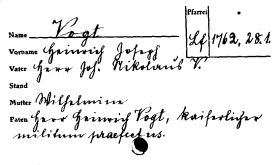 Pfarrei
Name Vogt
Lf 1762, 28.1.
Vorname Heinrich Joseph
Vater Herr Joh. Nikolaus V.
Stand
Mutter Wilhelmine
Paten Herr Heinrich Vogt, kaiserlicher
militum praefectus.